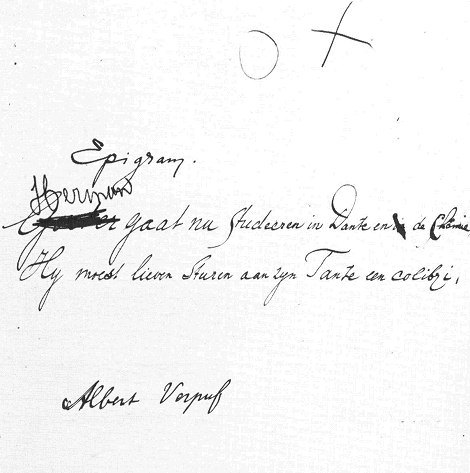 Epigram.
Herman
gaat nu studeeren in Dante en de Chimie
Hy moest liever sturen aan zyn Tante een colibri,
Albert Verpuf